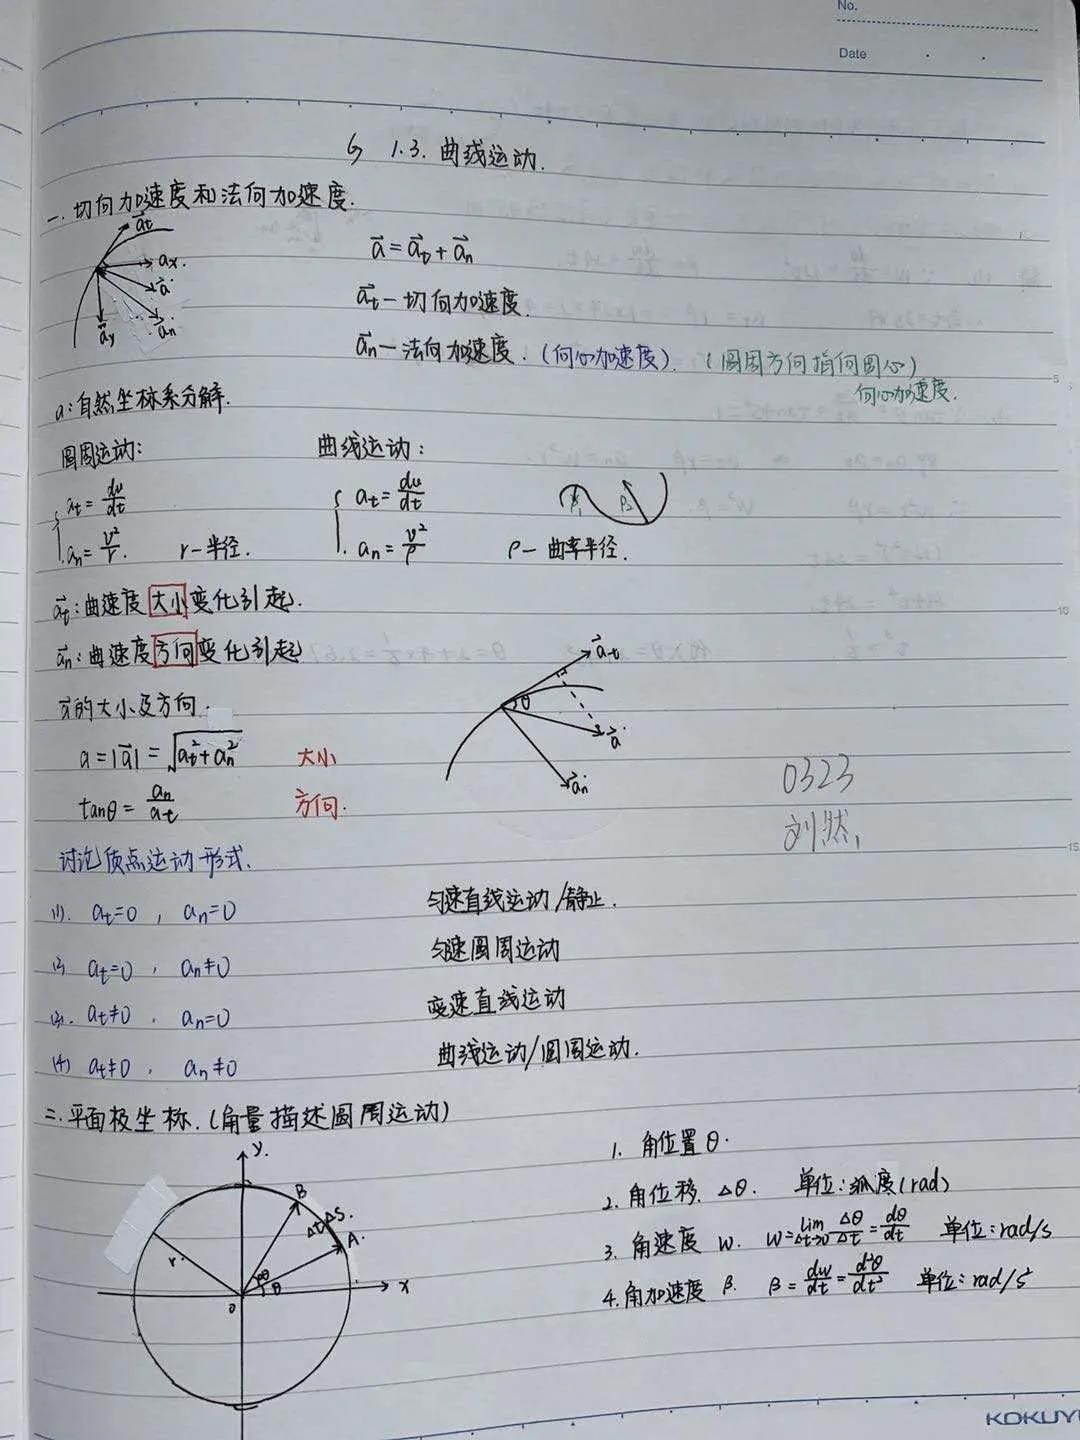 No.
Date
§ 1.3. 曲线运动.
一. 切向加速度和法向加速度.
a⃗t
ax.
a⃗
a⃗n
a⃗y
a⃗ = a⃗t + a⃗n
a⃗t — 切向加速度.
a⃗n — 法向加速度. (向心加速度). (圆周方向指向圆心)
向心加速度.
a: 自然坐标系分解.
圆周运动: 曲线运动:
{ at = dv/dt { at = dv/dt ρ1 ρ2
an = v²/r. r — 半径. an = v²/ρ ρ — 曲率半径.
a⃗t: 由速度大小变化引起.
a⃗n: 由速度方向变化引起
a⃗的大小及方向.
a = |a⃗| = √(at² + an²) 大小
tanθ = an/at 方向.
a⃗t
θ
a⃗
a⃗n
0323
刘然,
讨论质点运动形式.
(1). at=0, an=0 匀速直线运动/静止.
(2) at=0, an≠0 匀速圆周运动
(3). at≠0. an=0 变速直线运动
(4) at≠0, an≠0 曲线运动/圆周运动.
二. 平面极坐标. (角量描述圆周运动)
y.
B
Δt ΔS.
A.
r.
Δθ
θ
O
x
1. 角位置 θ.
2. 角位移. Δθ. 单位: 弧度(rad)
3. 角速度 w. w = lim Δt→0 Δθ/Δt = dθ/dt 单位: rad/s
4. 角加速度 β. β = dw/dt = d²θ/dt² 单位: rad/s²
5
10
15
KOKUYO